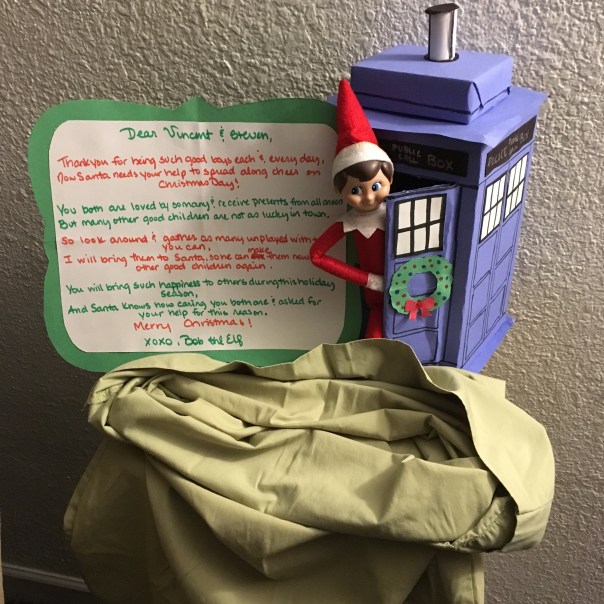 Dear Vincent & Steven,
Thankyou for being such good boys each & every day,
Now Santa needs your help to spread along cheer on
Christmas Day!
You both are loved by so many & receive presents from all around
But many other good children are not as lucky in town.
So look around & gather as many unplayed with
you can,
I will bring them to Santa, so he can make them new
other good children again.
You will bring such happiness to others during this holiday
season,
And Santa knows how caring you both are & asked for
your help for this reason.
Merry Christmas!
XOXO, Bob the Elf
PUBLIC CALL BOX
POLICE BOX